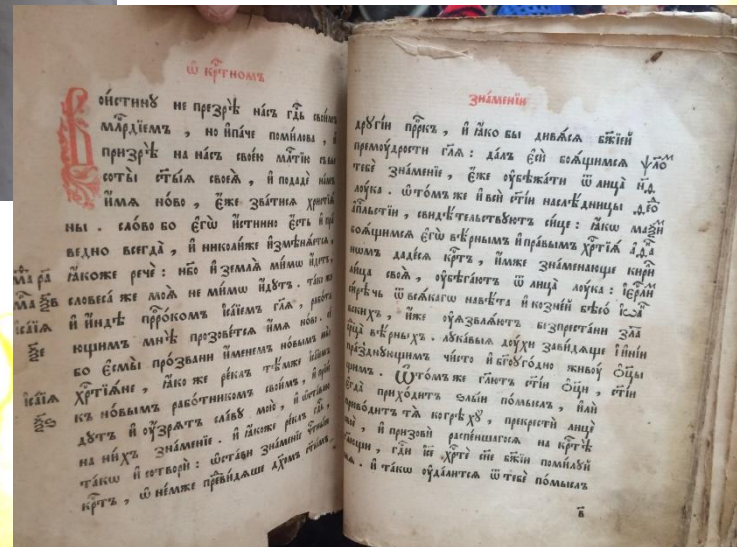 ѿ кр҇тномъ
Воистинꙋ не презрѣ насъ гд҇ь своимъ
мл҇рдїемъ , но и҆па́че поми́лова , и҆
призрѣ на на́съ свое́ю мл҇тїю съ вы
соты̀ ст҃ы́ѧ своеѧ̀ , и҆ подадѐ на́мъ
и҆́мѧ но́во , є҆́же зва́тисѧ христїѧ́
ны . сло́во бо є҆гѡ̀ и҆́стинно є҆́сть и҆ пра
ведно всегда̀ , и҆ николи́же и҆змѣнѧ́етсѧ ,
ꙗ҆́коже речѐ : нб҃о и҆ землѧ̀ ми́мѡ и҆дꙋтъ ,
словеса́ же моѧ̀ не ми́мѡ и҆дꙋтъ . та́коже
и҆ и҆́ндѣ прⷪ҇ро́комъ і҆са́їемъ гл҃ѧ , рабо́та
ющимъ мнѣ̀ прозове́тсѧ и҆́мѧ но́во . се́
бо є҆смы̀ про́звани и҆́менемъ но́вымъ
хр҇тїѧ́не , ꙗ҆́ко же ре́клъ тѣ́мже і҆са́їемъ
къ но́вымъ рабо́тникомъ свои́мъ , и҆ прїи
дꙋ́тъ и҆ оу҆́зрѧтъ сла́вꙋ мою̀ , и҆ ѡ҆ста́влю
на ни́хъ зна́менїе . и҆ ꙗ҆́коже ре́клъ гд҇ь ,
та́кѡ и҆ сотворѝ : ѡ҆ста́ви зна́менїе чⷭ҇тны́и
кр҇тъ , ѡ҆ не́мже преви́дѧше дх҃омъ ст҃ы́мъ
ма ра
ма лв
і҆са́їѧ
ѯе
і҆са́їѧ
ѯѕ
зна́менїи
дрꙋгі́и прⷪ҇ркъ , и҆ ꙗ҆́ко бы дивѧ́сѧ бж҃їей
премоу́дрости гл҃ѧ : да́лъ є҆сѝ боѧ́щимсѧ
тебѐ зна́менїе , є҆́же оу҆бѣжа́ти ѿ лица̀
лоу́ка . ѿто́мъ же и҆ всѝ ст҃і́и наслѣ́дницы
а҆пⷭ҇льстїи , свидѣ́тельствꙋютъ си́це : ꙗ҆́кѡ
боѧ́щимсѧ є҆гѡ̀ вѣ́рнымъ и҆ пра́вымъ хр҇тїѧ́
номъ даде́сѧ кр҇тъ , и҆́мже зна́менающе
ли́ца своѧ̀ , оу҆бѣга́ютъ ѿ лица̀ лоу́ка :
си́рѣчь ѿ всѧ́кагѡ навѣ́та и҆ ко́зней бѣсо́
вскихъ , и҆̀же оу҆ѧзвлѧ́ютъ безпреста́ни
срⷣца вѣ́рныхъ . лꙋка́выѧ дꙋ́хи зави́дѧще
пра́зднꙋющимъ чи́сто и҆ бг҃оуго́дно живоу́
щимъ . Ѿто́мъ же гл҃ютъ ст҃і́и ѻ҆ц҃ы̀ ,
є҆гда̀ прихо́дитъ ѕлы́и по́мыслъ , и҆лѝ
приво́дитъ тѧ̀ ко грѣ́хꙋ , прекрестѝ лицѐ
своѐ , и҆ призовѝ распе́ншагосѧ на кр҇тѣ̀
глаго́лющи , гд҇и і҆се хр҇тѐ сн҃е бж҃їи поми́лꙋй
мѧ̀ . и҆ та́кѡ оу҆дали́тсѧ ѿ тебѐ по́мыслъ
ѱло́м
н҃д .
ма́ѯи
кири́
і҆ерⷭ҇ли́
зла
и҆ и҆ні́и
ѻ҆ц҃ы
ст҃і́и
в҃